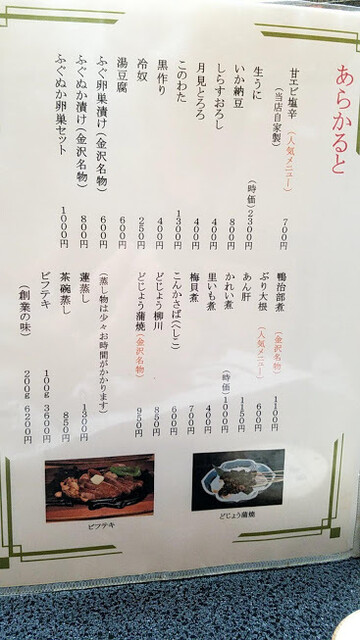 あらかると
甘エビ塩辛 (人気メニュー) 700円
(当店自家製)
生うに (時価) 2300円
いか納豆 800円
しらすおろし 400円
月見とろろ 400円
このわた 1300円
黒作り 400円
冷奴 250円
湯豆腐 600円
ふぐ卵巣漬け (金沢名物) 600円
ふぐぬか漬け (金沢名物) 800円
ふぐぬか卵巣セット 1000円
鴨治部煮 (金沢名物) 1100円
ぶり大根 (人気メニュー) 600円
あん肝 1150円
かれい煮 (時価) 1000円
里いも煮 400円
梅貝煮 700円
こんかさば(へしこ) 600円
どじょう柳川 850円
どじょう蒲焼 (金沢名物) 950円
(蒸し物は少々お時間がかかります)
蓮蒸し 1300円
茶碗蒸し 850円
ビフテキ 100g 3600円
(創業の味) 200g 6200円
ビフテキ
どじょう蒲焼